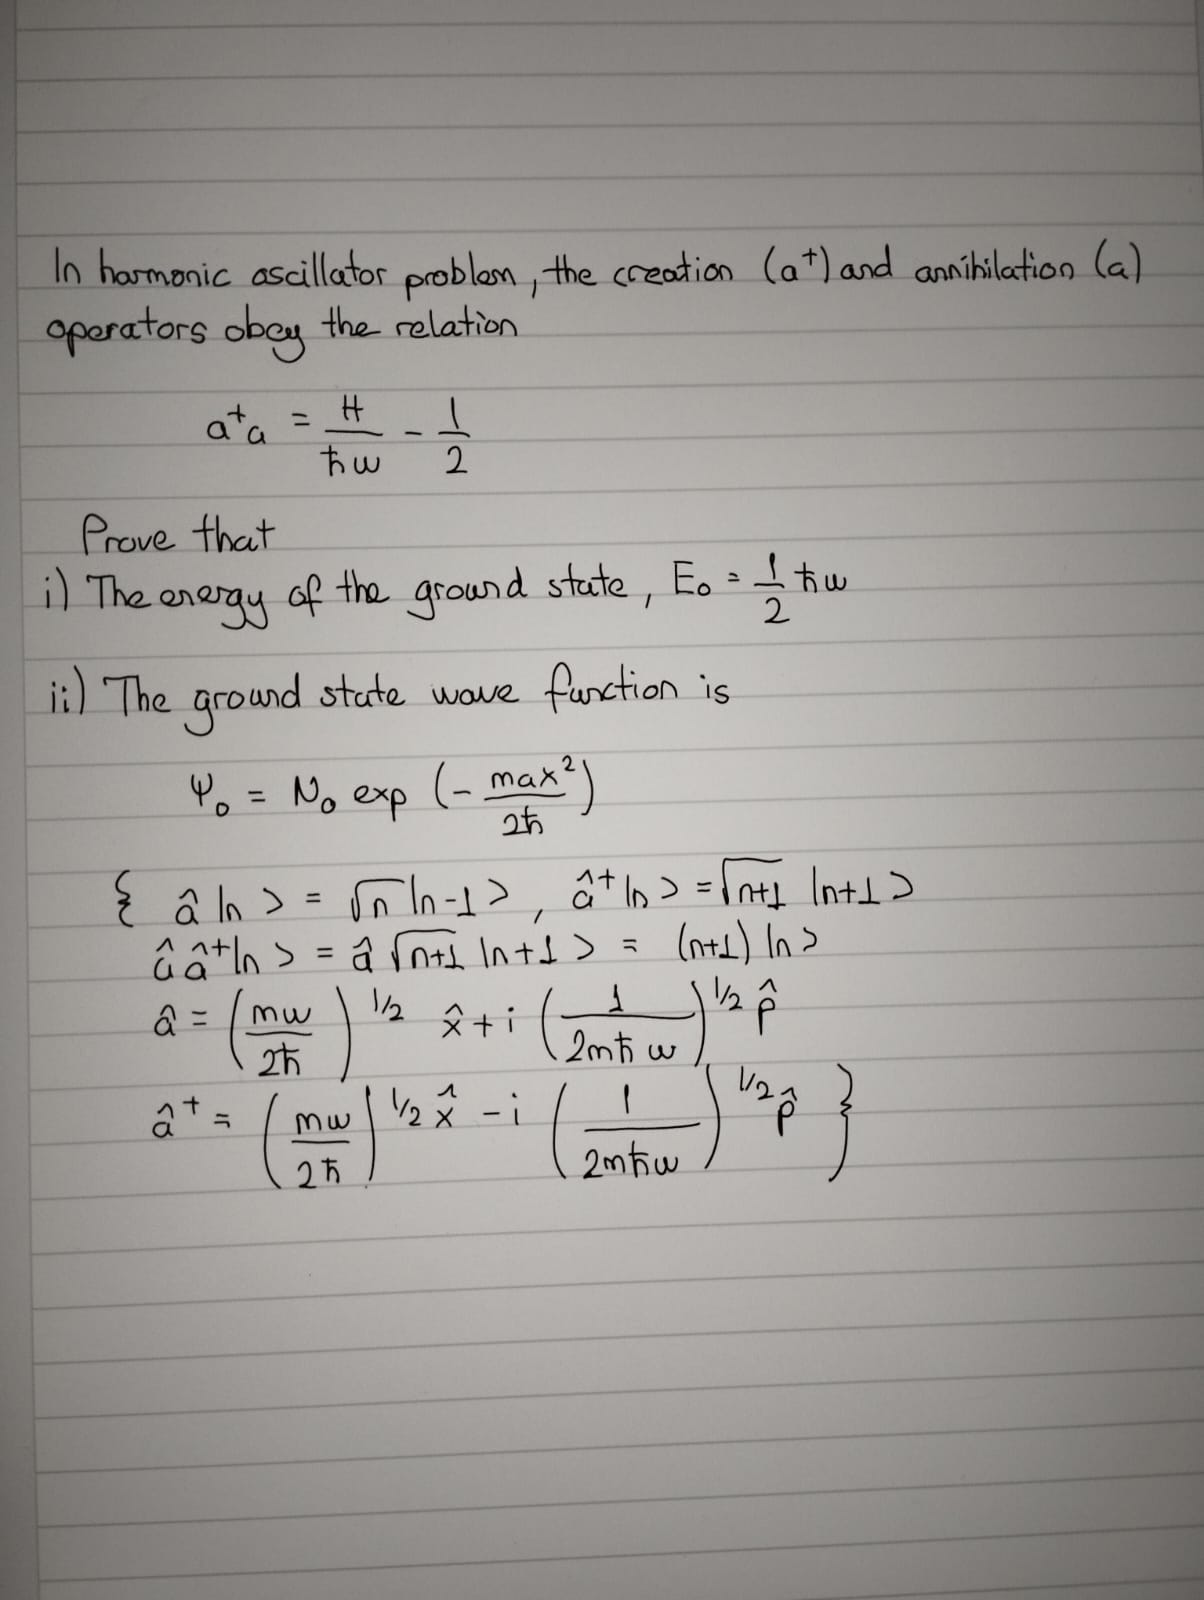 In harmonic oscillator problem, the creation (a⁺) and annihilation (a)
operators obey the relation
a⁺a = H/ħω - 1/2
Prove that
i) The energy of the ground state, E₀ = 1/2 ħω
ii) The ground state wave function is
Ψ₀ = N₀ exp (- max²/2ħ)
{ â |n> = √n |n-1>, â⁺|n> = √n+1 |n+1>
ââ⁺|n> = â √n+1 |n+1> = (n+1) |n>
â = (mω/2ħ)^1/2 x̂ + i (1/2mħω)^1/2 p̂
â⁺ = (mω/2ħ)^1/2 x̂ - i (1/2mħω)^1/2 p̂ }